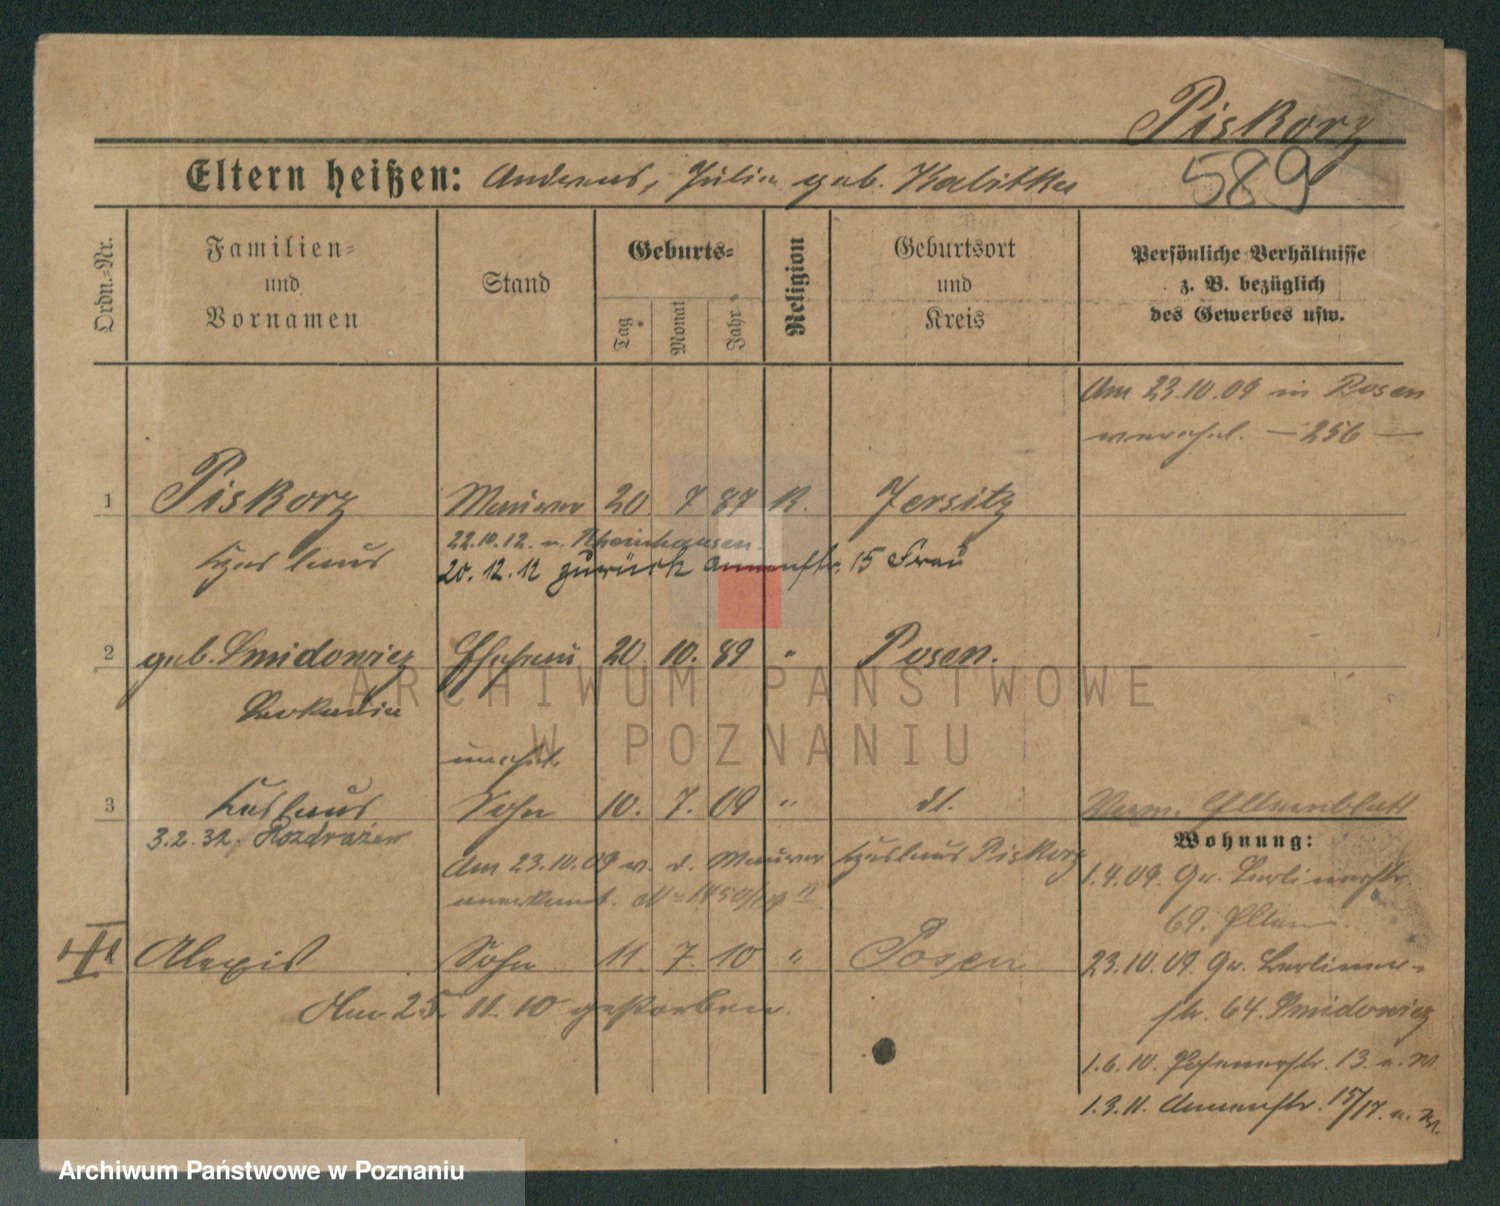 Piskorz
589
Eltern heißen: Andreas, Julia geb. Kalitka
Ordn.=Nr.
Familien=
und
Vornamen
Stand
Geburts=
Tag
Monat
Jahr
Religion
Geburtsort
und
Kreis
Persönliche Verhältnisse
z. B. bezüglich
des Gewerbes usw.
Am 23.10.09 in Posen
verehel. — 256 —
1 Piskorz Maurer 20. 7 87 K. Jersitz
22.10.12. n. Rheinhausen.
20.12.12 zurück Annenstr. 15 Frau
2 geb. Smidowicz Ehefrau 20 10. 89 " Posen.
Leokadia
unehel.
3 Sohn 10. 7. 09 " dt.
3.2.32. Rozdrażew
Am 23.10.09 v. d. Maurer Piskorz
anerkannt.
4 Alexis Sohn 11. 7. 10 " Posen
Am 25. 11. 10 gestorben.
Verm. Elternblatt
Wohnung:
1.4.09. Gr. Berlinerstr.
69. Eltern
23.10.09. Gr. Berliner=
str. 64. Smidowicz
1.6.10. Posenerstr. 13. a. M.
1.3.11. Annenstr. 15/17. a. M.
ARCHIWUM PAŃSTWOWE
W POZNANIU
Archiwum Państwowe w Poznaniu